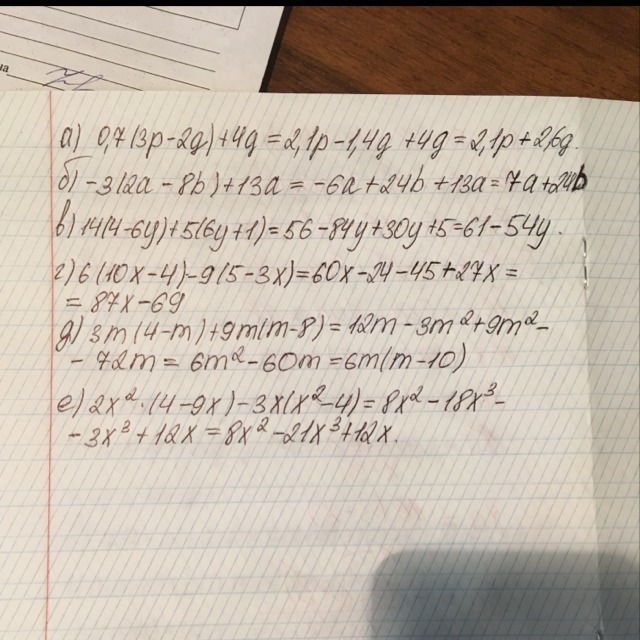 на
а) 0,7(3p-2g)+4g=2,1p-1,4g+4g=2,1p+2,6g.
б) -3(2a-8b)+13a=-6a+24b+13a=7a+24b
в) 14(4-6y)+5(6y+1)=56-84y+30y+5=61-54y.
г) 6(10x-4)-9(5-3x)=60x-24-45+27x=
=87x-69
д) 3m(4-m)+9m(m-8)=12m-3m²+9m²-
-72m=6m²-60m=6m(m-10)
е) 2x²·(4-9x)-3x(x²-4)=8x²-18x³-
-3x³+12x=8x²-21x³+12x.